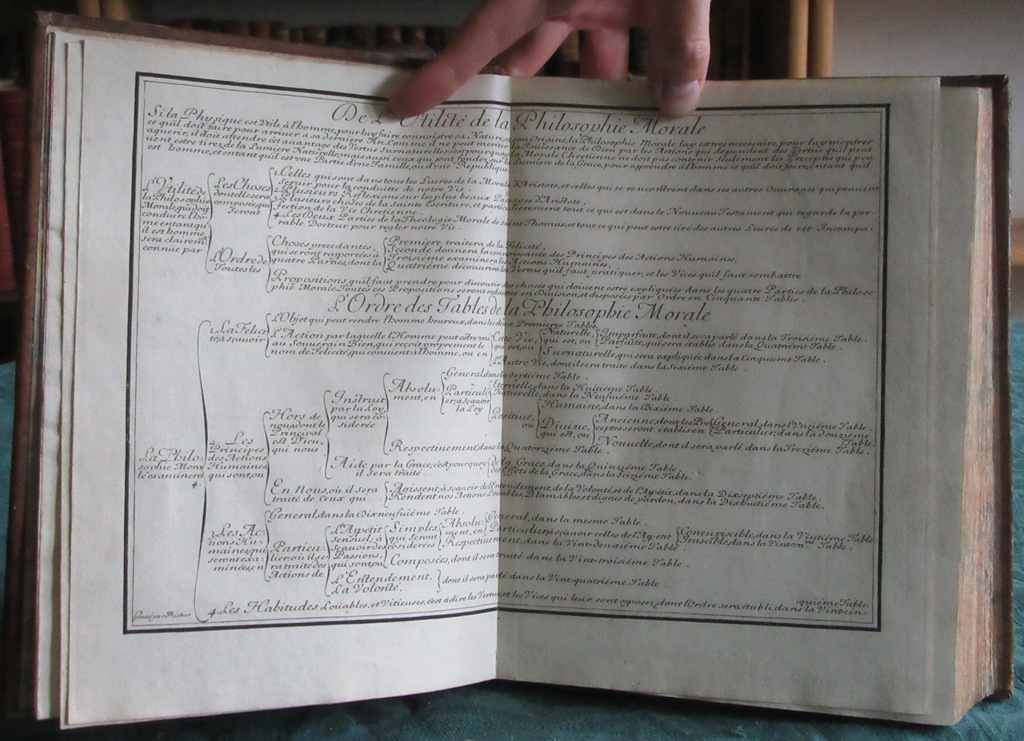 De L'Utilité de la Philosophie Morale
Si la Physique est Utile à l'homme pour luy faire connoistre sa Nature, et son Origine, la Philosophie Morale luy est necessaire, pour luy montrer
ce quil doit faire pour arriuer à sa derniere Fin. Comme il ne peut meriter la Joüissance de Dieu par les Actions qui dependent des Vertus quil peut
aquerir; il doit attendre cét auantage des Vertus surnaturelles; c'est pourquoy la Morale Chretienne ne doit pas contenir seulement les Preceptes qui peu
uent estre tirez de la Lumiere Naturelle, mais aussi ceux qui sont fondez sur la Lumiere de la Grace, pour apprendre à l'homme ce qu'il doit faire, entant quil
est homme, et entant qu'il est vne Partie d'une Famille, ou d'une Republique.
L'Vtilité de
la Philosophie
Morale, qui doit
conduire l'ho-
me, entant qu'
il est homme,
sera clairem.t
connüe par
Les Choses
dont elle sera
composée, qui
Seront
1. Celles qui sont dans tous les Liures de la Morale d'Aristote, et celles qui se rencontrent dans ses autres Ouurages qui peuuent
seruir pour la conduite de notre Vie.
2. Plusieurs Reflexions sur les plus beaux Passages d'Aristote.
3. Plusieurs choses de la Sainte Ecriture, et particulierement tout ce qui est dans le Nouueau Testament qui regarde la per-
fection de la Vie Chretienne.
4. Les Deux Parties de la Theologie Morale de Saint Thomas, et tous ce qui peut estre tiré des autres Liures de cét Incompa-
rable Docteur pour regler notre Vie.
L'Ordre de
Toutes les
Choses precedantes,
qui seront raportées à
quatre Parties, dont la
Premiere, traitera de la Felicité,
Seconde donnera la connoissance des Principes des Actions Humaines,
Troisiéme examinera les Actions Humaines,
Quatriéme découurira les Vertus quil faut pratiquer, et les Vices quil faut combattre
Propositions quil faut prendre pour discourir des choses qui doiuent estre expliquées dans les quatre Parties de la Philoso-
phie Morale. Toutes ces Propositions seront reduittes en Diuision, et disposées par Ordre en Cinquante Tables.
L'Ordre des Tables de la Philosophie Morale
La Philo-
sophie Mora
le examinera
4
1 La Felici
té, à sçauoir
L'Objet qui peut rendre l'homme heureux, dans les deux Premieres Tables.
L'Action par laquelle l'Homme peut estre vni
au Souuerain Bien, qui reçoit proprement le
nom de Felicité, qui conuient à l'homme, ou en
Cete Vie,
et est, ou
Naturelle,
qui est, ou
Imparfaite, dont il sera parlé dans la Troisiéme Table.
Parfaite, qui sera établie dans la Quatriéme Table.
Surnaturelle, qui sera expliquée dans la Cinquiéme Table.
L'Autre Vie, dont il sera traité dans la Sixiéme Table.
2. Les
Principes
des Actions
Humaines,
qui sont, ou
Hors de
nous, dont le
Principal
est Dieu,
qui nous
Instruit
par la Loy,
qui sera co-
siderée
Absolu-
ment, en
General, dans la septiéme Table.
Particulie
er, à sçauoir
la Loy
Eternelle, dans la Huitiéme Table.
Naturelle, dans la Neufuiéme Table.
Positiue,
ou
Humaine, dans la Dixiéme Table.
Diuine,
qui est, ou
Ancienne, dont les Pre
ceptes seront établis en
General, dans l'Vnziéme Table.
Particulier, dans la douziéme
Table.
Nouuelle, dont il sera parlé dans la Treziéme Table.
Respectiuement, dans la Quatorziéme Table.
Aide par la Grace, c'est pourquoy
il sera traité
de la Grace, dans la Quinziéme Table.
des Effets de la Grace, dans la Seiziéme Table.
En Nous, où il sera
traité de Ceux qui
Agissent, à sçauoir de l'Entendement, de la Volonté, et de l'Appetit, dans la Dixseptiéme Table.
Rendent nos Actions Loüables, Blamables, et dignes de pardon, dans la Dixhuitiéme Table.
3. Les Ac
tions Hu-
maines, qui
seront exa-
minées, en
General, dans la Dixneufuiéme Table.
Particu-
lier, où il se
ra traité des
Actions de
L'Appetit
sensuel, à
Sçauoir des
Passions,
qui sont, ou
Simples,
qui seront
considerées
Absolu
ment, en
General, dans la mesme Table.
Particulier, à sçauoir celles de l'Appetit
Concupiscible, dans la Vintiéme Table
Irascible, dans la Vint-vn.e Table.
Respectiuement, dans la Vint-deuxiéme Table.
Composées, dont il sera traité dans la Vint-troisiéme Table.
L'Entendement,
La Volonté,
dont il sera parlé dans la Vint-quatriéme Table.
4. Les Habitudes Loüables, et Vitieuses, c'est à dire les Vertus, et les Vices qui leur sont oppozez, dont l'Ordre sera établi dans la Vint-cin-
quiéme Table.